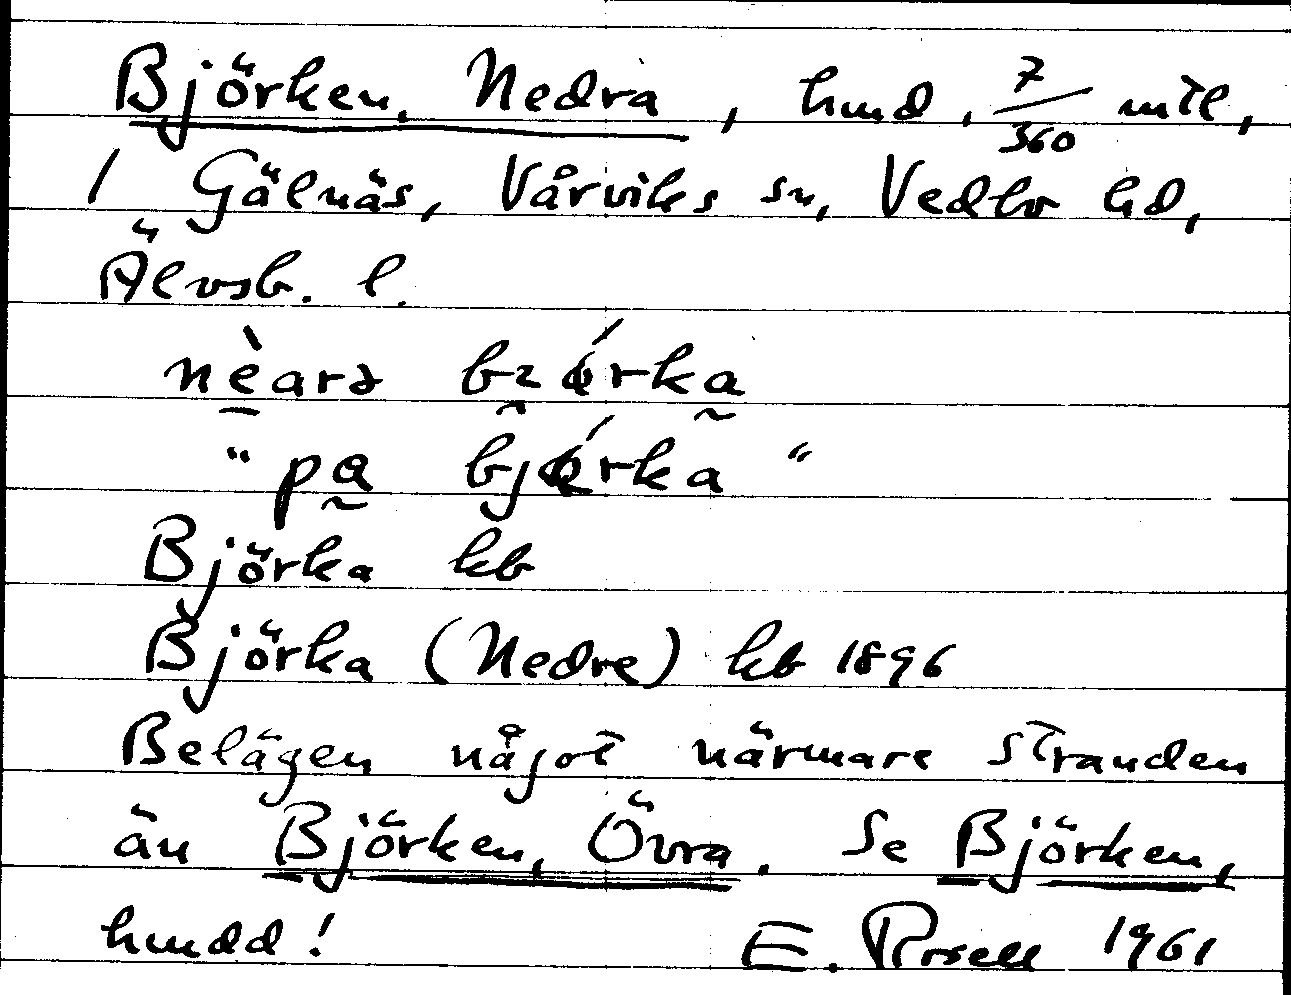 Björken, Nedra, hmd, 7/360 mtl,
1 Gälnäs, Vårviks sn, Vedbo hd,
Älvsb. l.
"på
Björka kb
Björka (Nedre) kb 1896
Belägen något närmare stranden
än Björken, Övra. Se Björken,
hmdd! E. Rosell 1961